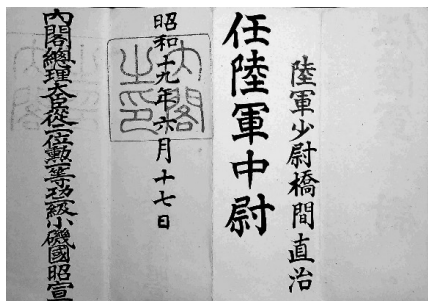 陸軍少尉橋間直治
任陸軍中尉
昭和十九年六月十七日
内閣之印
内閣總理大臣從二位勳一等功二級小磯國昭宣